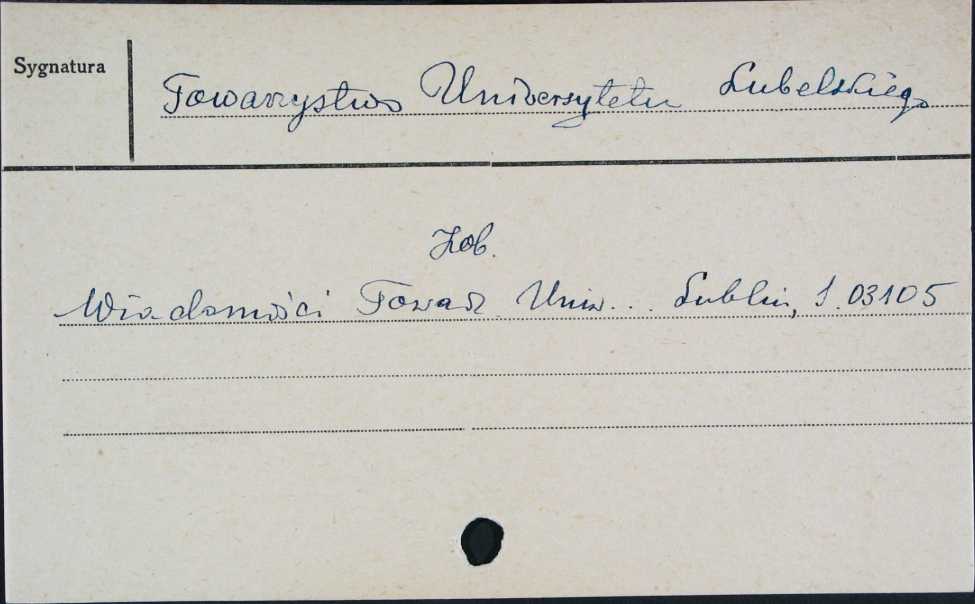 Sygnatura
Towarzystwo Uniwersytetu Lubelskiego
Zob.
Wiadomości Towarz. Uniw... Lublin, S. 03105